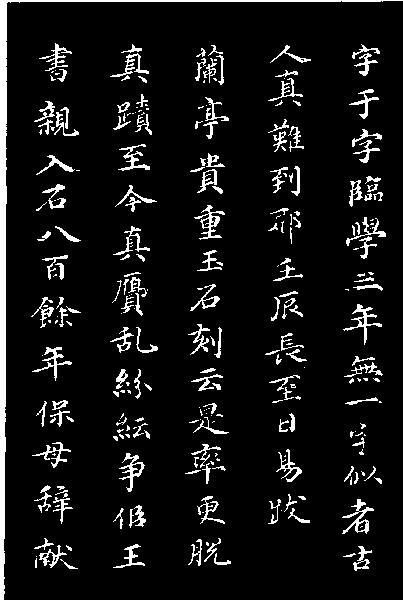 字于字臨學三年無一字似者古
人真難到耶壬辰長至日易跋
蘭亭貴重玉石刻云是率更脱
真蹟至今真贋乱紛紜争佀王
書親入石八百餘年保母辞献